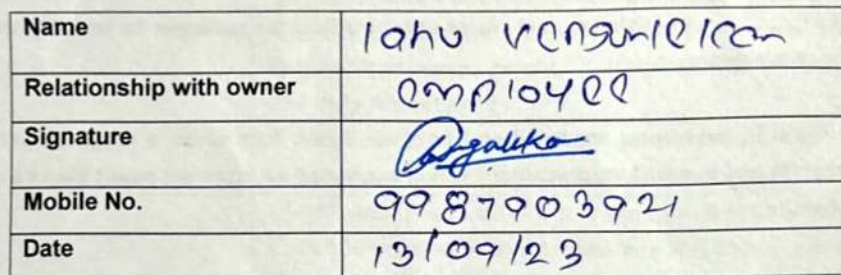 Name
Relationship with owner employee
Signature
Mobile No. 9987903921
Date 13/09/23